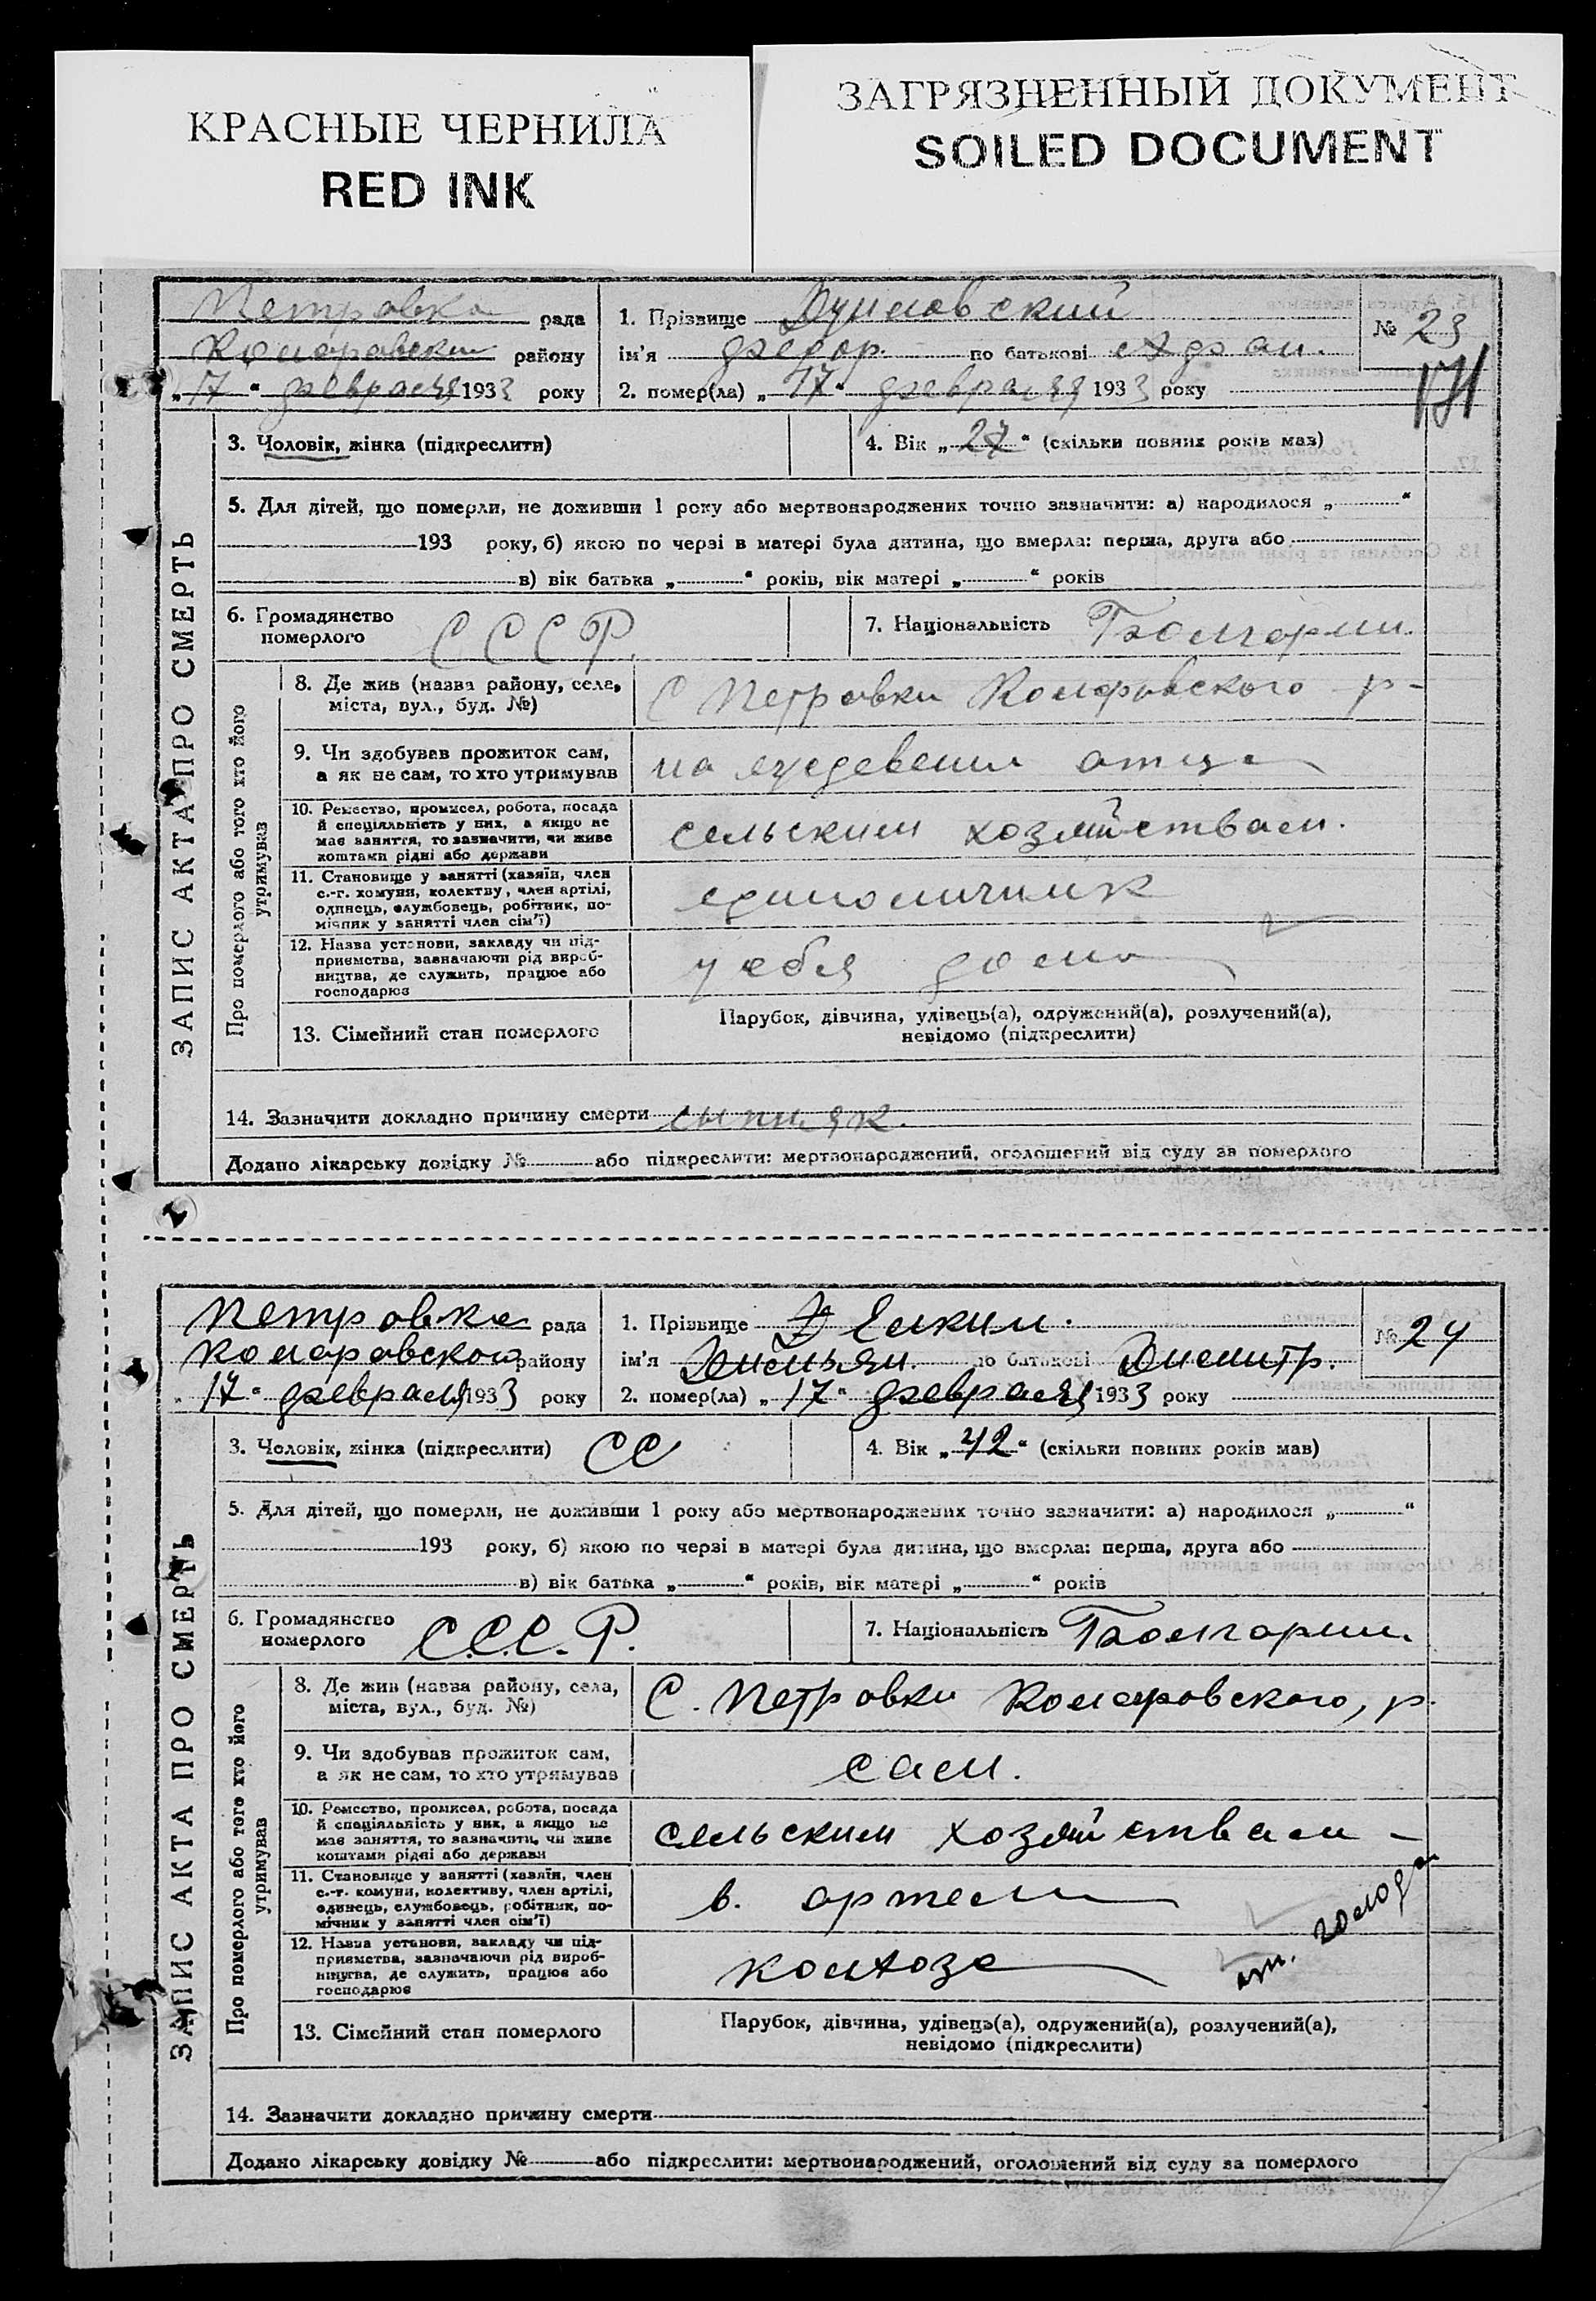 КРАСНЫЕ ЧЕРНИЛА
RED INK
ЗАГРЯЗНЕННЫЙ ДОКУМЕНТ
SOILED DOCUMENT
Петровка рада
1. Прізвище
№ 23
району
ім'я Фёдор. по батькові
„17“ февраля 1933 року
2. помер(ла) „17“ февраля 1933 року
171
3. Чоловік, жінка (підкреслити)
4. Вік „27“ (скільки повних років мав)
5. Для дітей, що померли, не доживши 1 року або мертвонароджених точно зазначити: а) народилося „ “
193 року, б) якою по черзі в матері була дитина, що вмерла: перша, друга або
в) вік батька „ “ років, вік матері „ “ років
6. Громадянство померлого С С С Р.
7. Національність
ЗАПИС АКТА ПРО СМЕРТЬ
Про померлого або того хто його утримував
8. Де жив (назва району, села, міста, вул., буд. №) С Петровки р-
9. Чи здобував прожиток сам, а як не сам, то хто утримував на отца
10. Ремество, промисел, робота, посада й спеціяльність у них, а якщо не має заняття, то зазначити, чи живе коштами рідні або держави сельским хозяйствам.
11. Становище у занятті (хазяїн, член с.-г. комуни, колективу, член артілі, одинець, службовець, робітник, помічник у занятті член сім'ї) единоличник
12. Назва установи, закладу чи підприємства, зазначаючи рід виробництва, де служить, працює або господарює у себя дома
13. Сімейний стан померлого Парубок, дівчина, удівець(а), одружений(а), розлучений(а), невідомо (підкреслити)
14. Зазначити докладно причину смерти сыпняк.
Додано лікарську довідку № або підкреслити: мертвонароджений, оголошений від суду за померлого
Петровка рада
1. Прізвище
№ 24
Комаровского району
ім'я Демьян. по батькові Дмитр.
„17“ февраля 1933 року
2. помер(ла) „17“ февраля 1933 року
3. Чоловік, жінка (підкреслити) СС
4. Вік „42“ (скільки повних років мав)
5. Для дітей, що померли, не доживши 1 року або мертвонароджених точно зазначити: а) народилося „ “
193 року, б) якою по черзі в матері була дитина, що вмерла: перша, друга або
в) вік батька „ “ років, вік матері „ “ років
6. Громадянство померлого С.С.С.Р.
7. Національність
ЗАПИС АКТА ПРО СМЕРТЬ
Про померлого або того хто його утримував
8. Де жив (назва району, села, міста, вул., буд. №) С. Петровки Комаровского, р.
9. Чи здобував прожиток сам, а як не сам, то хто утримував сам.
10. Ремество, промисел, робота, посада й спеціяльність у них, а якщо не має заняття, то зазначити, чи живе коштами рідні або держави сельским хозяйствам -
11. Становище у занятті (хазяїн, член с.-г. комуни, колективу, член артілі, одинець, службовець, робітник, помічник у занятті член сім'ї) в. артели
12. Назва установи, закладу чи підприємства, зазначаючи рід виробництва, де служить, працює або господарює колхоза
от. голода
13. Сімейний стан померлого Парубок, дівчина, удівець(а), одружений(а), розлучений(а), невідомо (підкреслити)
14. Зазначити докладно причину смерти
Додано лікарську довідку № або підкреслити: мертвонароджений, оголошений від суду за померлого